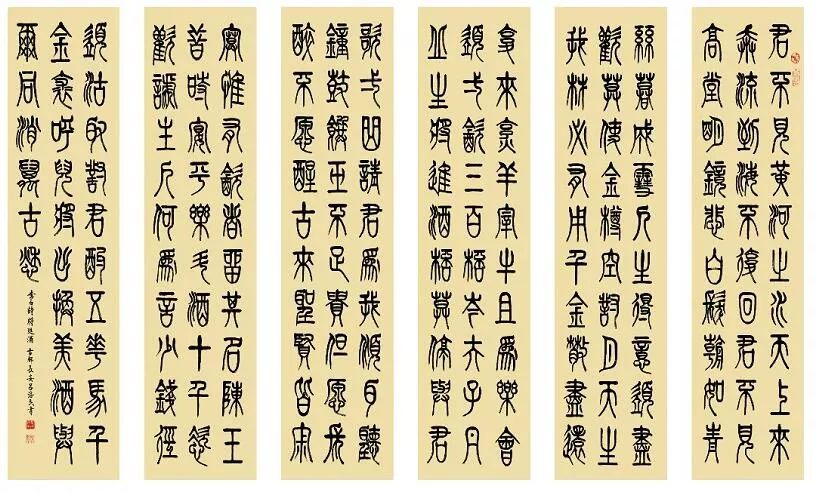 君不見黃河之水天上來
奔流到海不復回君不見
高堂明鏡悲白髮朝如青
絲暮成雪人生得意須盡
歡莫使金樽空對月天生
我材必有用千金散盡還
復來烹羊宰牛且為樂會
須一飲三百杯岑夫子丹
丘生將進酒杯莫停與君
歌一曲請君為我傾耳聽
鐘鼓饌玉不足貴但願長
醉不願醒古來聖賢皆寂
寞惟有飲者留其名陳王
昔時宴平樂斗酒十千恣
歡謔主人何為言少錢徑
須沽取對君酌五花馬千
金裘呼兒將出換美酒與
爾同消萬古愁
李白詩將進酒 長安呂